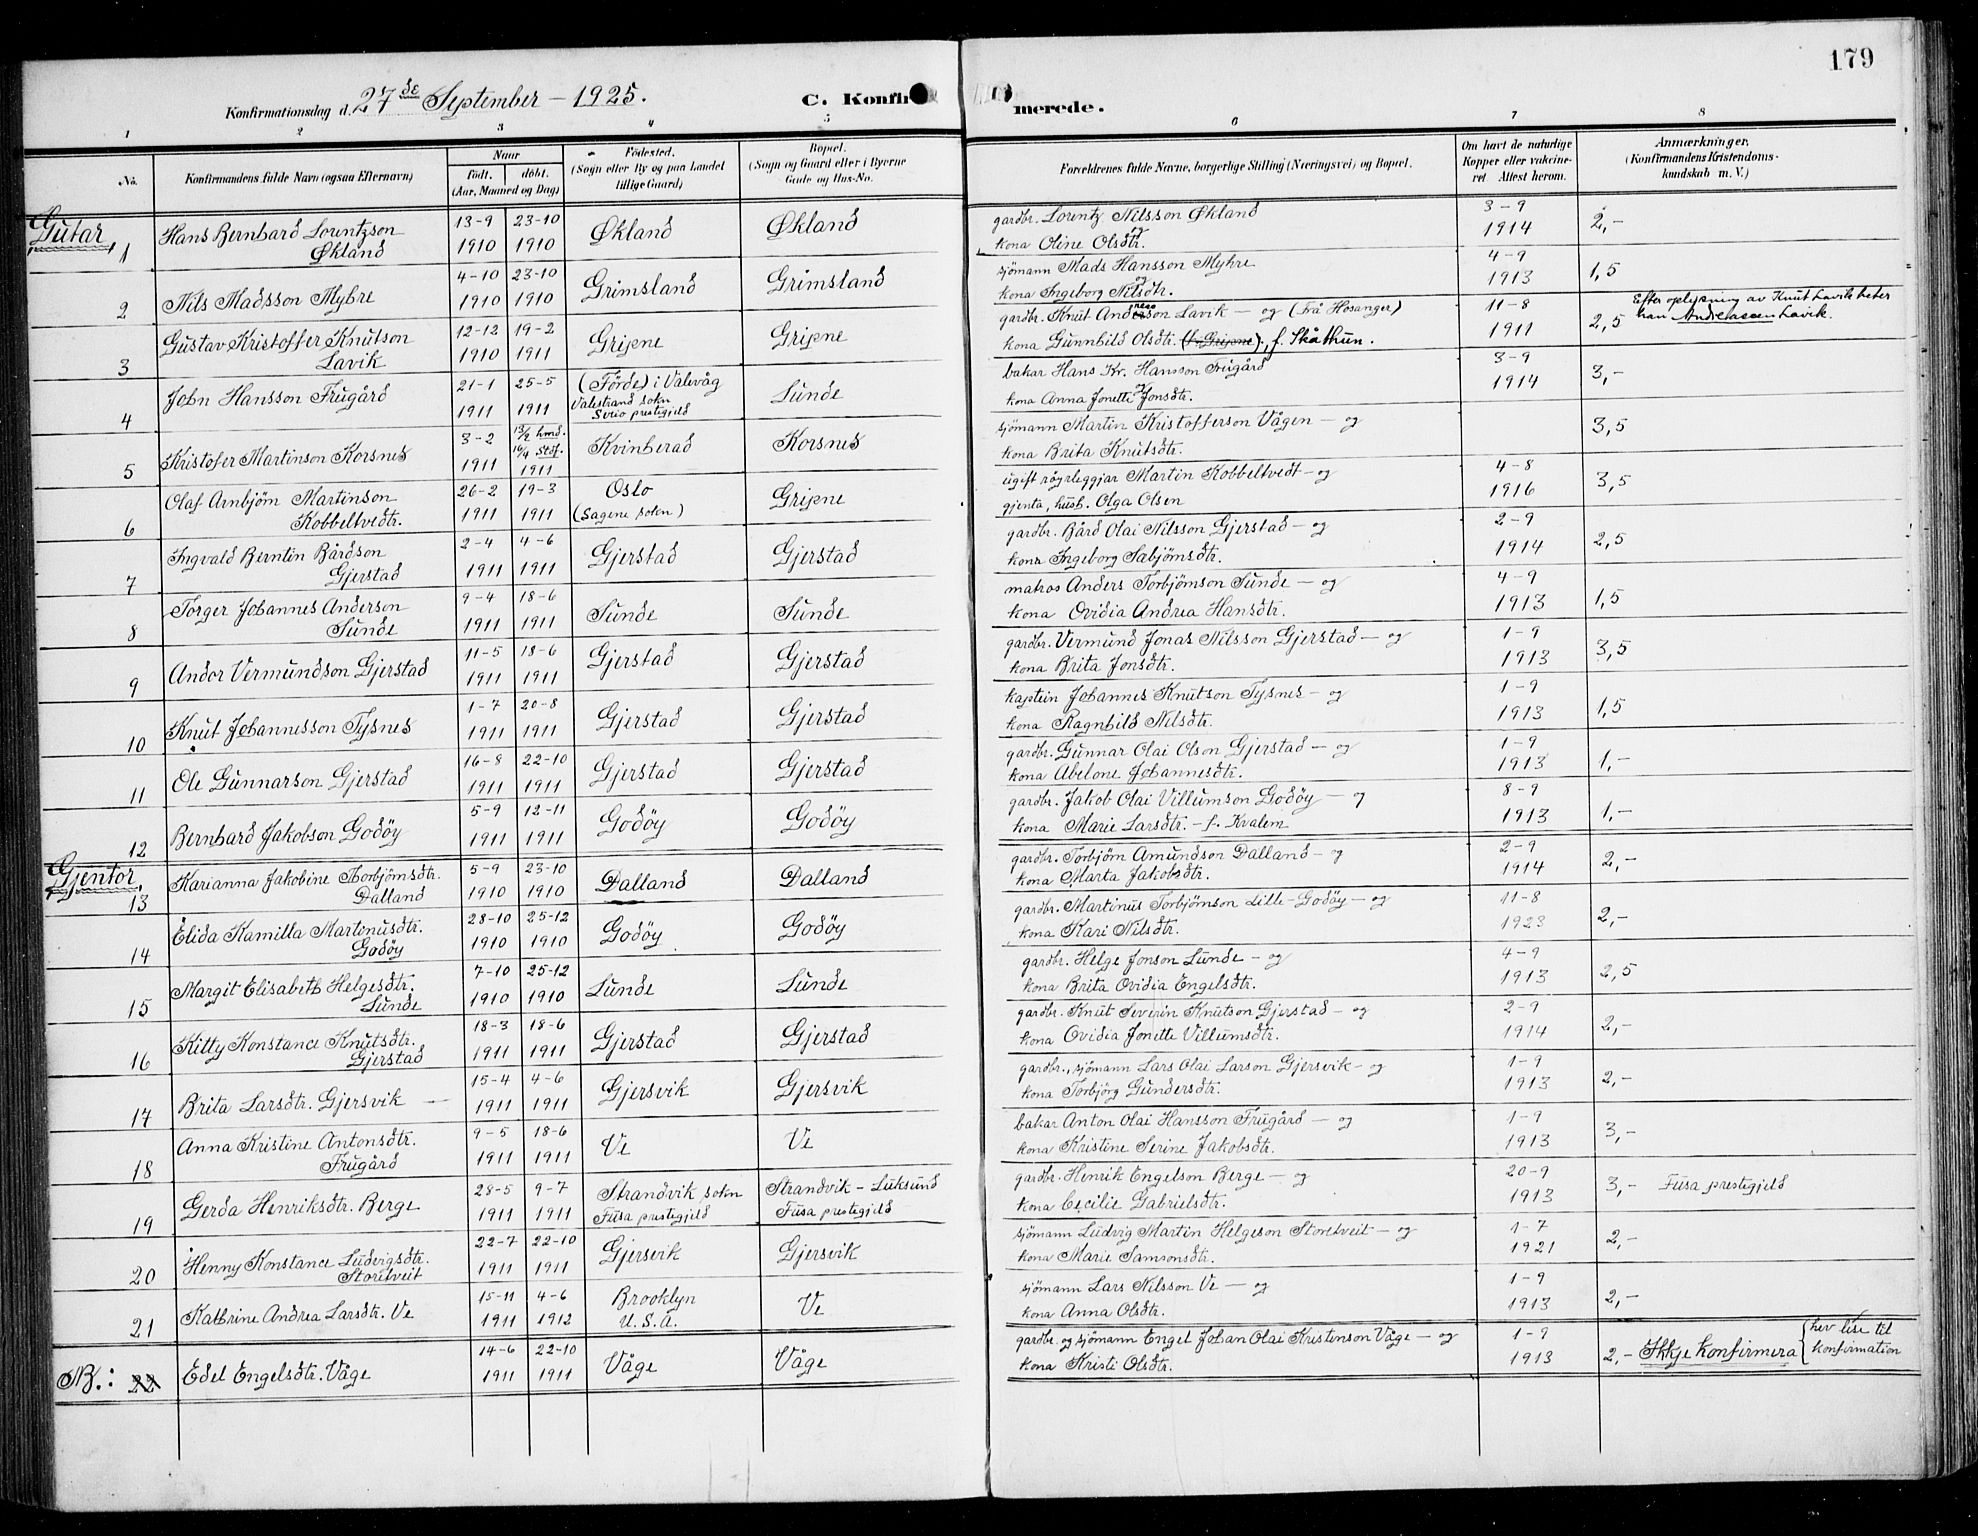 179
Konfirmationsdag d. 27de September – 1925.
C. Konfir
merede.
1 2 3 4 5 6 7 8
No.
Konfirmandens fulde Navn (ogsaa Efternavn)
Naar
født. døbt.
(Aar, Maaned og Dag)
Fødested.
(Sogn eller By og paa Landet
tillige Gaard)
Bopæl.
(Sogn og Gaard eller i Byerne
Gade og Hus-No.
Forældrenes fulde Navne, borgerlige Stilling (Næringsvei) og Bopæl.
Om havt de naturlige
Kopper eller vakcine-
ret Attest herom.
Anmærkninger,
(Konfirmandens Kristendoms-
kundskab m. V.)
Gutar
1 Hans Bernhard Lorentzson Økland 13-9 1910 23-10 1910 Økland Økland gardbr. Lorentz Nilsson Økland og kona Oline Olsdtr. 3-9 1914 2,-
2 Nils Madsson Myhre 4-10 1910 23-10 1910 Grimsland Grimsland sjømann Mads Hansson Myhre og kona Ingeborg Nilsdtr. 4-9 1913 1,5
3 Gustav Kristoffer Knutson Lavik 12-12 1910 19-2 1911 Gripne Gripne gardbr. Knut Anderson Lavik – og (Frå Hosanger) kona Gunnhild Olsdtr. (f. Gripne), f. Skåthun. 11-8 1911 2,5 Efter oplysning av Knut Lavik heter han Andreassen Lavik.
4 John Hansson Frugård 21-1 1911 25-5 1911 (Förde) i Valevåg Valestrand sokn Sveio prestigjeld Sunde bakar Hans Kr. Hansson Frugård og kona Anna Jonette Jonsdtr. 3-9 1914 3,-
5 Kristofer Martinson Korsnes 3-2 1911 13/2 hmd. 16/4 Stdf. 1911 Kvinherad Korsnes sjömann Martin Kristofferson Vågen – og kona Brita Knutsdtr. 3,5
6 Olaf Arnbjörn Martinson Kobbeltvedtr. 26-2 1911 19-3 1911 Oslo (Sagene sokn) Gripne ugift röyrleggjar Martin Kobbeltvedt – og gjenta, hush. Olga Olsen 4-8 1916 3,5
7 Ingvald Berntin Bårdson Gjerstad 2-4 1911 4-6 1911 Gjerstad Gjerstad gardbr. Bård Olai Nilsson Gjerstad – og kona Ingeborg Sabjørnsdtr. 2-9 1914 2,5
8 Torger Johannes Anderson Sunde 9-4 1911 18-6 1911 Sunde Sunde matros Anders Torbjörnson Sunde – og kona Ovidia Andrea Hansdtr. 4-9 1913 1,5
9 Andor Vermundson Gjerstad 11-5 1911 18-6 1911 Gjerstad Gjerstad gardbr. Vermund Jonas Nilsson Gjerstad – og kona Brita Jonsdtr. 1-9 1913 3,5
10 Knut Johannesson Tysnes 1-7 1911 20-8 1911 Gjerstad Gjerstad kaptein Johannes Knutson Tysnes – og kona Ragnhild Nilsdtr. 1-9 1913 1,5
11 Ole Gunnarson Gjerstad 16-8 1911 22-10 1911 Gjerstad Gjerstad gardbr. Gunnar Olai Olson Gjerstad – og kona Abelone Johannesdtr. 1-9 1913 1,-
12 Bernhard Jakobson Godöy 5-9 1911 12-11 1911 Godöy Godöy gardbr. Jakob Olai Villumson Godöy – og kona Marie Larsdtr. – f. Kvalem 8-9 1913 1,-
Gjentor.
13 Karianna Jakobine Thorbjörnsdtr. Dalland 5-9 1910 23-10 1910 Dalland Dalland gardbr. Torbjörn Amundson Dalland – og kona Marta Jakobsdtr. 2-9 1914 2,-
14 Elida Kamilla Martenusdtr. Godöy 28-10 1910 25-12 1910 Godöy Godöy gardbr. Martinus Torbjörnson Lille-Godöy – og kona Kari Nilsdtr. 11-8 1923 2,-
15 Margit Elisabeth Helgesdtr. Sunde 7-10 1910 25-12 1910 Sunde Sunde gardbr. Helge Jonson Sunde – og kona Brita Ovidia Engelsdtr. 4-9 1913 2,5
16 Kitty Konstance Knutsdtr. Gjerstad 18-3 1911 18-6 1911 Gjerstad Gjerstad gardbr. Knut Severin Knutson Gjerstad – og kona Ovidia Jonette Villumsdtr. 2-9 1914 2,-
17 Brita Larsdtr. Gjersvik 15-4 1911 4-6 1911 Gjersvik Gjersvik gardbr., sjömann Lars Olai Larson Gjersvik – og kona Torbjörg Gundersdtr. 1-9 1913 2,-
18 Anna Kristine Antonsdtr. Frugård 9-5 1911 18-6 1911 Ve Ve bakar Anton Olai Hansson Frugård – og kona Kristine Serine Jakobsdtr. 1-9 1913 3,-
19 Gerda Henriksdtr. Berge 28-5 1911 9-7 1911 Strandvik sokn Fusa prestigjeld Strandvik – Luksund Fusa prestigjeld gardbr. Henrik Engelson Berge – og kona Cecilie Gabrielsdtr. 20-9 1913 3,- Fusa prestigjeld
20 Henny Konstance Ludvigsdtr. Storetveit 22-7 1911 22-10 1911 Gjersvik Gjersvik sjömann Ludvig Martin Helgeson Storetveit – og kona Marie Samsonsdtr. 1-7 1921 2,-
21 Kathrine Andrea Larsdtr. Ve 15-11 1911 4-6 1912 Brooklyn U.S.A. Ve sjömann Lars Nilsson Ve – og kona Anna Olsdtr. 1-9 1913 2,-
NB.: 22 Edel Engelsdtr. Våge 14-6 1911 22-10 1911 Våge Våge gardbr. og sjömann Engel Johan Olai Kristenson Våge – og kona Kristi Olsdtr. 1-9 1913 2,- Ikkje konfirmera hev lise til konfirmation